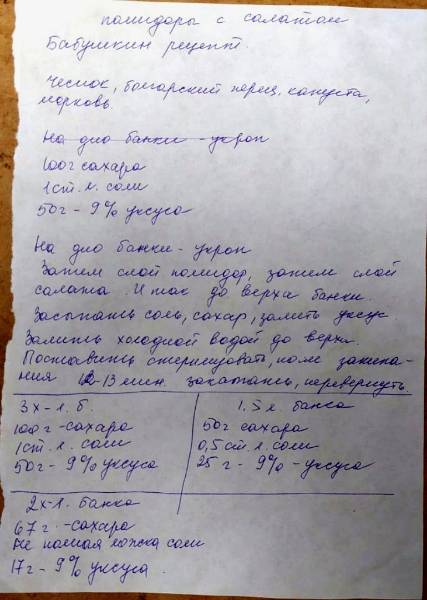 помидоры с салатом
Бабушкин рецепт.
Чеснок, болгарский перец, капуста,
морковь.
На дно банки - укроп
100г сахара
1 ст. л. соли
50г - 9% уксуса
На дно банки - укроп
Затем слой помидор, затем слой
салата. И так до верха банки.
Засыпать соль, сахар, залить уксус.
Залить холодной водой до верха.
Поставить стерилизовать, после закипа-
ния 12-13 мин. закатать, перевернуть
3х-л. б.
100 г - сахара
1 ст. л. соли
50г - 9% уксуса
1,5 л. банка
50г сахара
0,5 ст. л. соли
25 г - 9% - уксуса
2х-л. банка
67 г. - сахара
Не полная ложка соли
17г - 9% уксуса.